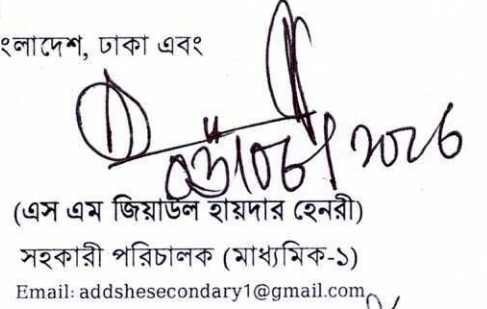 ংলাদেশ, ঢাকা এবং
(এস এম জিয়াউল হায়দার হেনরী)
সহকারী পরিচালক (মাধ্যমিক-১)
Email: addshesecondary1@gmail.com